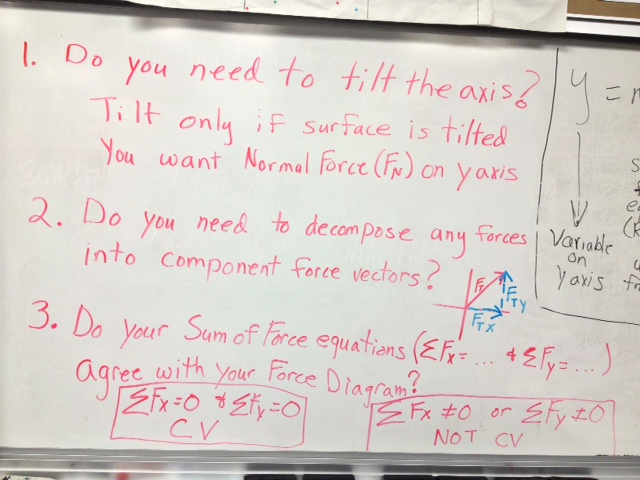 1. Do you need to tilt the axis?
Tilt only if surface is tilted
You want Normal Force (FN) on y axis
2. Do you need to decompose any forces
into component force vectors?
FT
FTY
FTX
3. Do your Sum of Force equations (ΣFx= ... & ΣFy= ... )
agree with your Force Diagram?
ΣFx=0 & ΣFy=0
CV
ΣFx ≠0 or ΣFy ≠0
NOT CV
y =
Variable
on
y axis